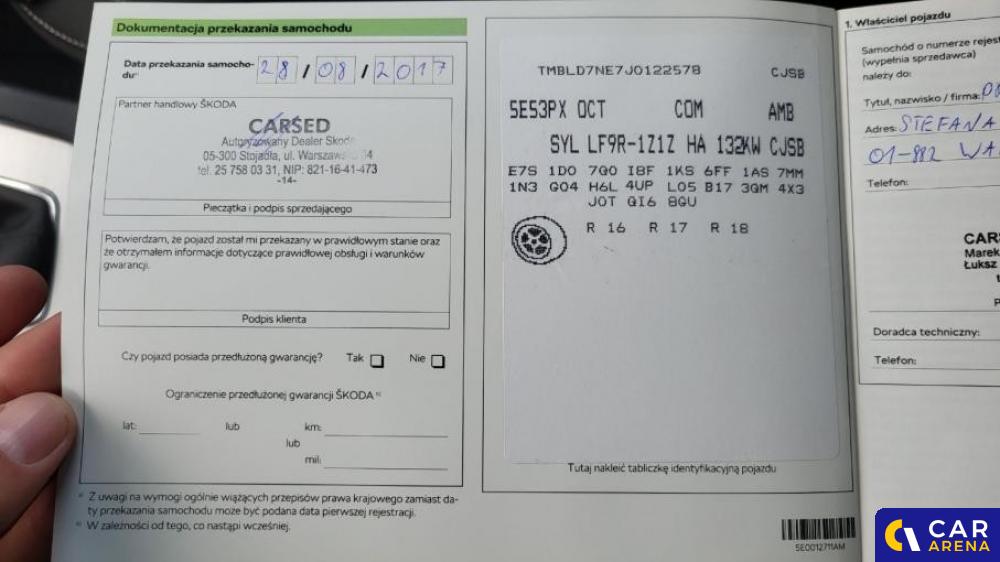 Dokumentacja przekazania samochodu
Data przekazania samocho-
du¹⁾
28/08/2017
Partner handlowy ŠKODA
CARSED
Autoryzowany Dealer Skoda
05-300 Stojadła, ul. Warszawska
tel. 25 758 03 31, NIP: 821-16-41-473
-14-
Pieczątka i podpis sprzedającego
Potwierdzam, że pojazd został mi przekazany w prawidłowym stanie oraz
że otrzymałem informacje dotyczące prawidłowej obsługi i warunków
gwarancji.
Podpis klienta
Czy pojazd posiada przedłużoną gwarancję? Tak Nie
Ograniczenie przedłużonej gwarancji ŠKODA
lat: lub km:
lub
mil:
Z uwagi na wymogi ogólnie wiążących przepisów prawa krajowego zamiast da-
ty przekazania samochodu może być podana data pierwszej rejestracji.
W zależności od tego, co nastąpi wcześniej.
TMBLD7NE7J0122578 CJSB
5E53PX OCT COM AMB
SYL LF9R-1Z1Z HA 132KW CJSB
E7S 1D0 7Q0 I8F 1KS 6FF 1AS 7MM
1N3 G04 H6L 4UP L05 B17 3QM 4X3
J0T QI6 8GU
R 16 R 17 R 18
Tutaj nakleić tabliczkę identyfikacyjną pojazdu
5E0012711AM
1. Właściciel pojazdu
Samochód o numerze rejest
(wypełnia sprzedawca)
należy do:
Tytuł, nazwisko / firma:
Adres: STEFANA
01-882 WA
Telefon:
CARS
Marek
Łukasz
Doradca techniczny:
Telefon:
CAR
ARENA